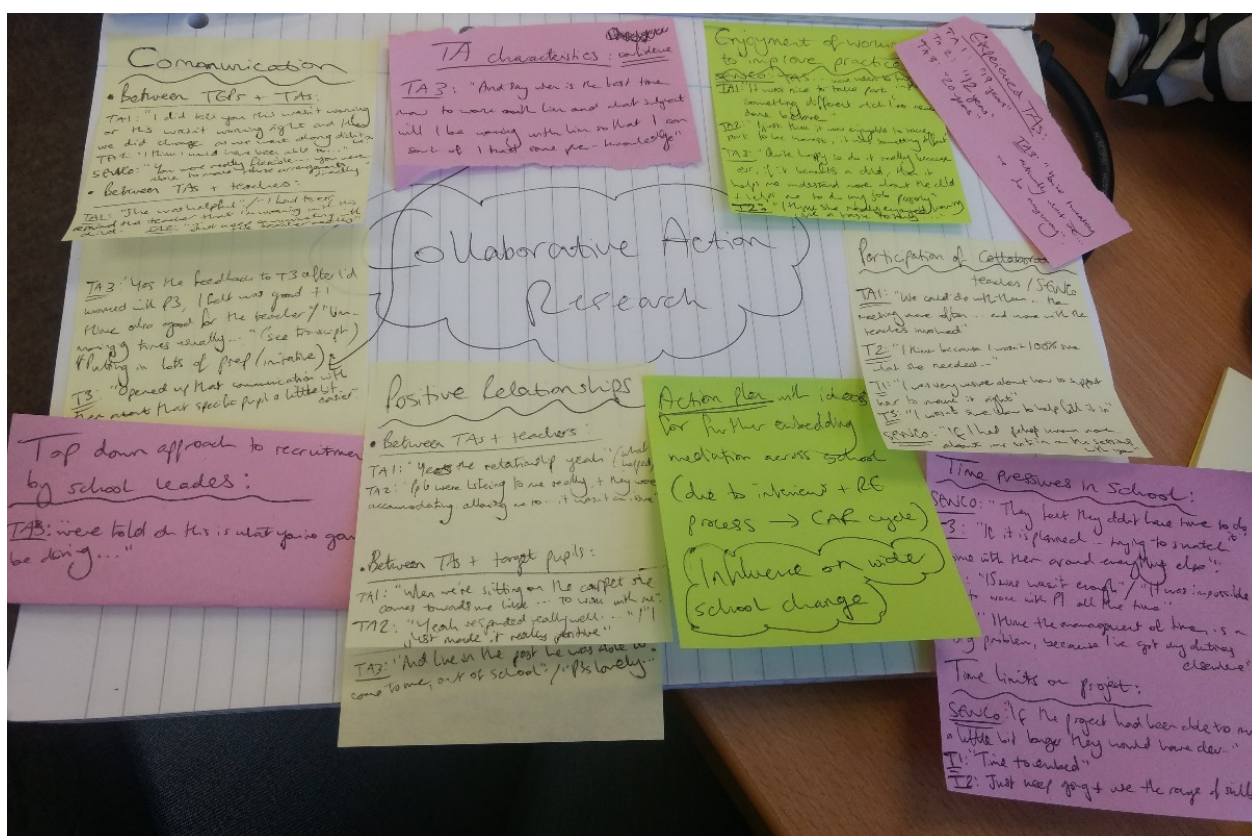 Communication
• Between TEPs + TAs:
TA1: "I did tell you this wasn't working
or this wasn't working right and then
we did change as we went along didn't
TA2: "I think I would have been able to..."
SENCo: "You were really flexible... you were
able to move those arrangements
• Between TAs + teachers:
TA1: "She was helpful" / "I had to
remind that teacher that I'm working with this
child.
TA3: "Yes the feedback to T3 after I'd
worked with P3, I felt was good + I
think also good for the teacher" / "I'm
times usually..." (see transcript)
Putting in lots of prep / initiative)
T3: "Opened up that communication with
that specific pupil a little bit
easier.
TA characteristics: confidence
TA3: "And say when is the best time
now to work with him and what subject
will I be working with him so that I can
sort of I had some pre-knowledge"
Enjoyment of working
to improve practice
SENCo: TAs
TA1: "It was nice to take part in
something different which I've never
done before
TA2: "I just think it was enjoyable to have
part to be honest, it was something different
TA3: "Quite happy to do it really because
if it benefits a child, then it
helps me understand more about the child
+ helps me to do my job properly"
T3: "I think she really enjoyed having
Experienced TAs:
TA1: "19 years"
TA2: "12 years"
TA3: "20 years"
TA3:
Collaborative Action
Research
Participation of
teachers / SENCo
TA1: "We could do with them... the
meeting more often... and more with the
teachers involved"
T2: "I think because I wasn't 100% sure
what she needed..."
T1: "I was very unsure about how to support
her to move it right"
T3: "I wasn't sure how to help fit it in"
SENCo: "If I had perhaps known more
about
with you"
Top down approach to recruitment
by school leaders:
TA3: were told oh this is what you're gonna
be doing..."
Positive Relationships
• Between TAs + teachers:
TA1: "Yeah the relationship yeah" (what
helped)
TA2: "Ppl were listening to me really, + they were
accomodating, allowing me to... it wasn't an issue"
• Between TAs + target pupils:
TA1: "When we're sitting on the carpet she
comes towards me like... to work with me"
TA2: "Yeah responded really well..." / "I
just made it really positive"
TA3: "And like in the past he was able to
come to me, out of school" / "P3's lovely"
Action plan with ideas
for further embedding
mediation across school
(due to interviews + RE
process → CAR cycle)
(Influence on wider
school change)
Time pressures in school:
SENCo: "They felt they didn't have time to do it"
3: "If it is planned... trying to snatch
time with them around everything else".
: "15 mins wasn't enough" / "It was impossible
to work with P1 all the time"
"I think the management of time, is a
big problem, because I've got my duties
elsewhere"
Time limits on project:
SENCo: "If the project had been able to run
a little bit longer they would have dev..."
T1: "Time to embed"
T2: Just keep going + use the range of skills